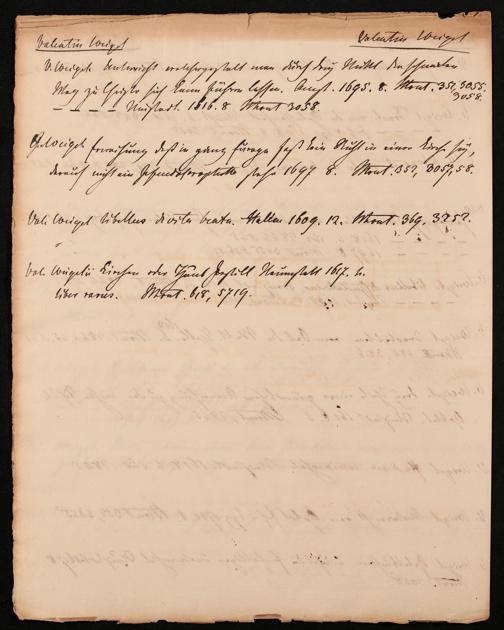 Valentin Weigel Valentin Weigel
V. Weigels Unterricht welchergestalt man durch drey Mittel den schmalen
Weg zu Christo sich kann führen lassen. Amst. 1695. 8. Mout. 351, 3055.
3058.
— — — — Neustadt. 1616. 8 Mout 3058.
Weigels daß in ganz Europa fast kein Stuhl in einer Kirche sey,
darauf nicht ein 1697 8. Mout. 352, 3057, 58.
Val. Weigel libellus de vita beata. Hallae 1609. 12. Mout. 369. 3252.
Val. Weigelii Kirchen oder Hauß Postill Neuenstatt 1617. 4.
liber rarus. Mout. 618, 5719.